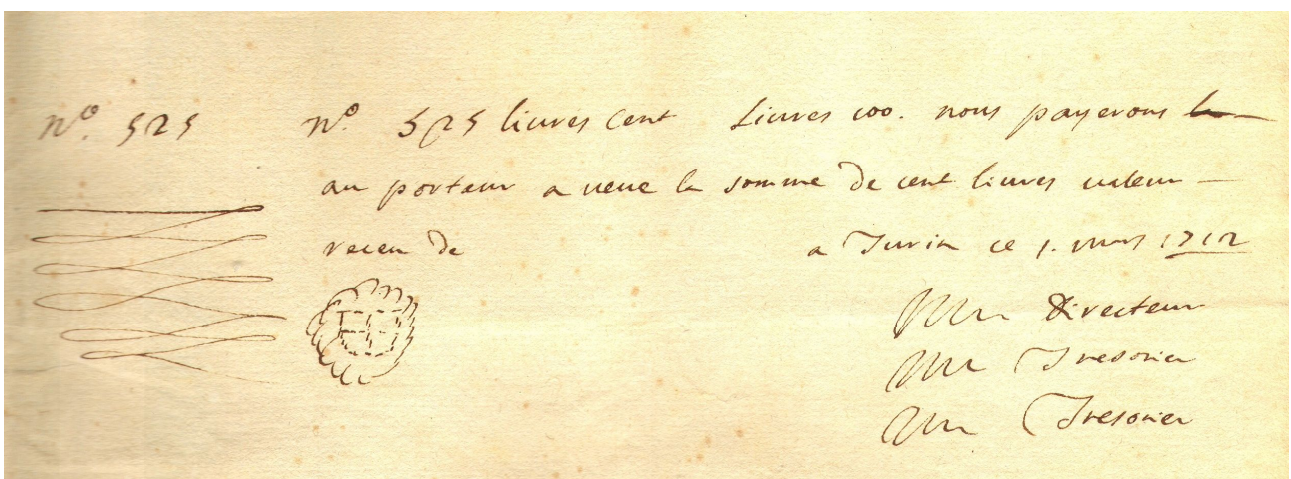 Nº. 525
nº. 525 livres Cent Livres 100. nous payerons
au porteur a veue la somme de cent livres valeur
receu de a Turin ce 1. mars 1712
Un Directeur
Un Tresorier
Un Tresorier